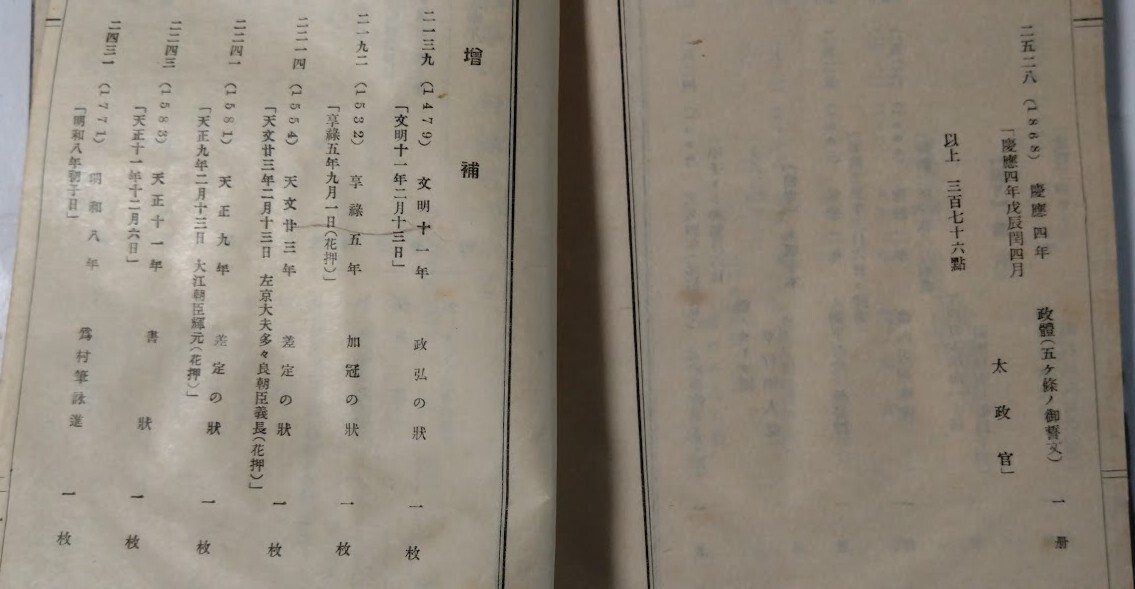 二五二八 (1868) 慶應四年 政體(五ケ條ノ御誓文) 一册
「慶應四年戊辰閏四月 太政官」
以上 三百七十六點
增補
二一三九 (1479) 文明十一年 政弘の狀 一枚
「文明十一年二月十三日」
二一九二 (1532) 享祿五年 加冠の狀 一枚
「享祿五年九月一日(花押)」
二二一四 (1554) 天文廿三年 差定の狀 一枚
「天文廿三年二月十三日 左京大夫多々良朝臣義長(花押)」
二二四一 (1581) 天正九年 差定の狀 一枚
「天正九年二月十三日 大江朝臣輝元(花押)」
二二四三 (1583) 天正十一年 書狀 一枚
「天正十一年十二月六日」
二四三一 (1771) 明和八年 爲村筆詠進 一枚
「明和八年初子日」